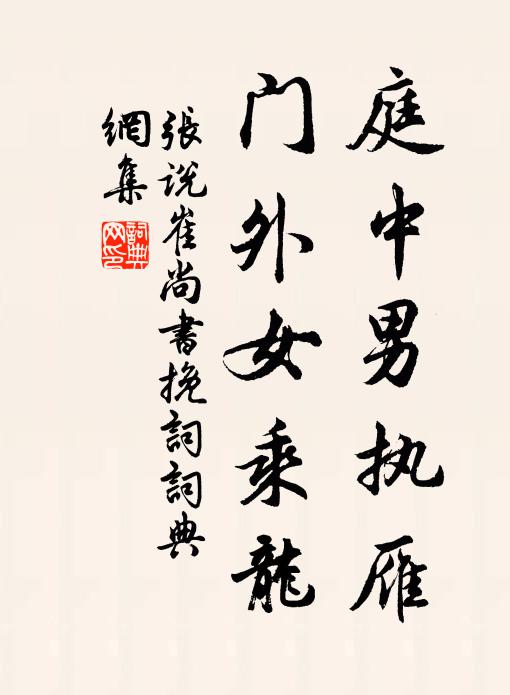 庭中男执雁
门外女乘龙
張说崔尚書挽詞詞典
網集
詞典
网印